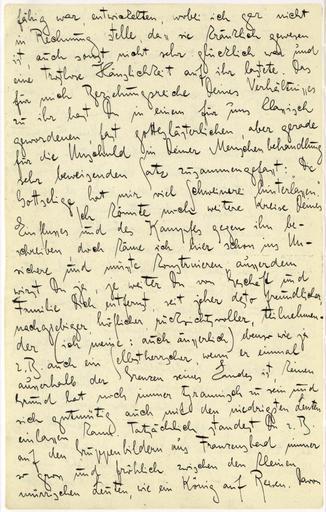 fähig war entwickelten, wobei ich gar nicht
in Rechnung stelle, dass sie kränklich gewesen
ist, auch sonst nicht sehr glücklich war und
eine trostlose Hässlichkeit auf ihr lastete. Das
für mich Beziehungsreiche Deines Verhältnisses
zu ihr hast Du in einem für uns klassisch
gewordenen, fast gotteslästerlichen, aber gerade
für die Unschuld in Deiner Menschenbehandlung
sehr beweisenden Satz zusammengefasst: Die
Gottselige hat mir viel Schweinerei hinterlassen.
Ich könnte noch weitere Kreise Deines
Einflusses und des Kampfes gegen ihn be-
schreiben doch käme ich hier schon ins Un-
sichere und müsste konstruieren, ausserdem
wirst Du ja, je weiter Du von Geschäft und
Familie Dich entfernst, seit jeher desto freundlicher
nachgiebiger, höflicher, rücksichtsvoller, teilnehmen-
der (ich meine: auch äusserlich) ebenso wie ja
z. B. auch ein Selbstherrscher wenn er einmal
ausserhalb der Grenzen seines Landes ist keinen
Grund hat noch immer tyrannisch zu sein und
sich gutmütig auch mit den niedrigsten Leuten
einlassen kann. Tatsächlich standest Du z. B.
auf den Gruppenbildern aus Franzensbad immer
so gross und fröhlich zwischen den kleinen
mürrischen Leuten, wie ein König auf Reisen. Davon